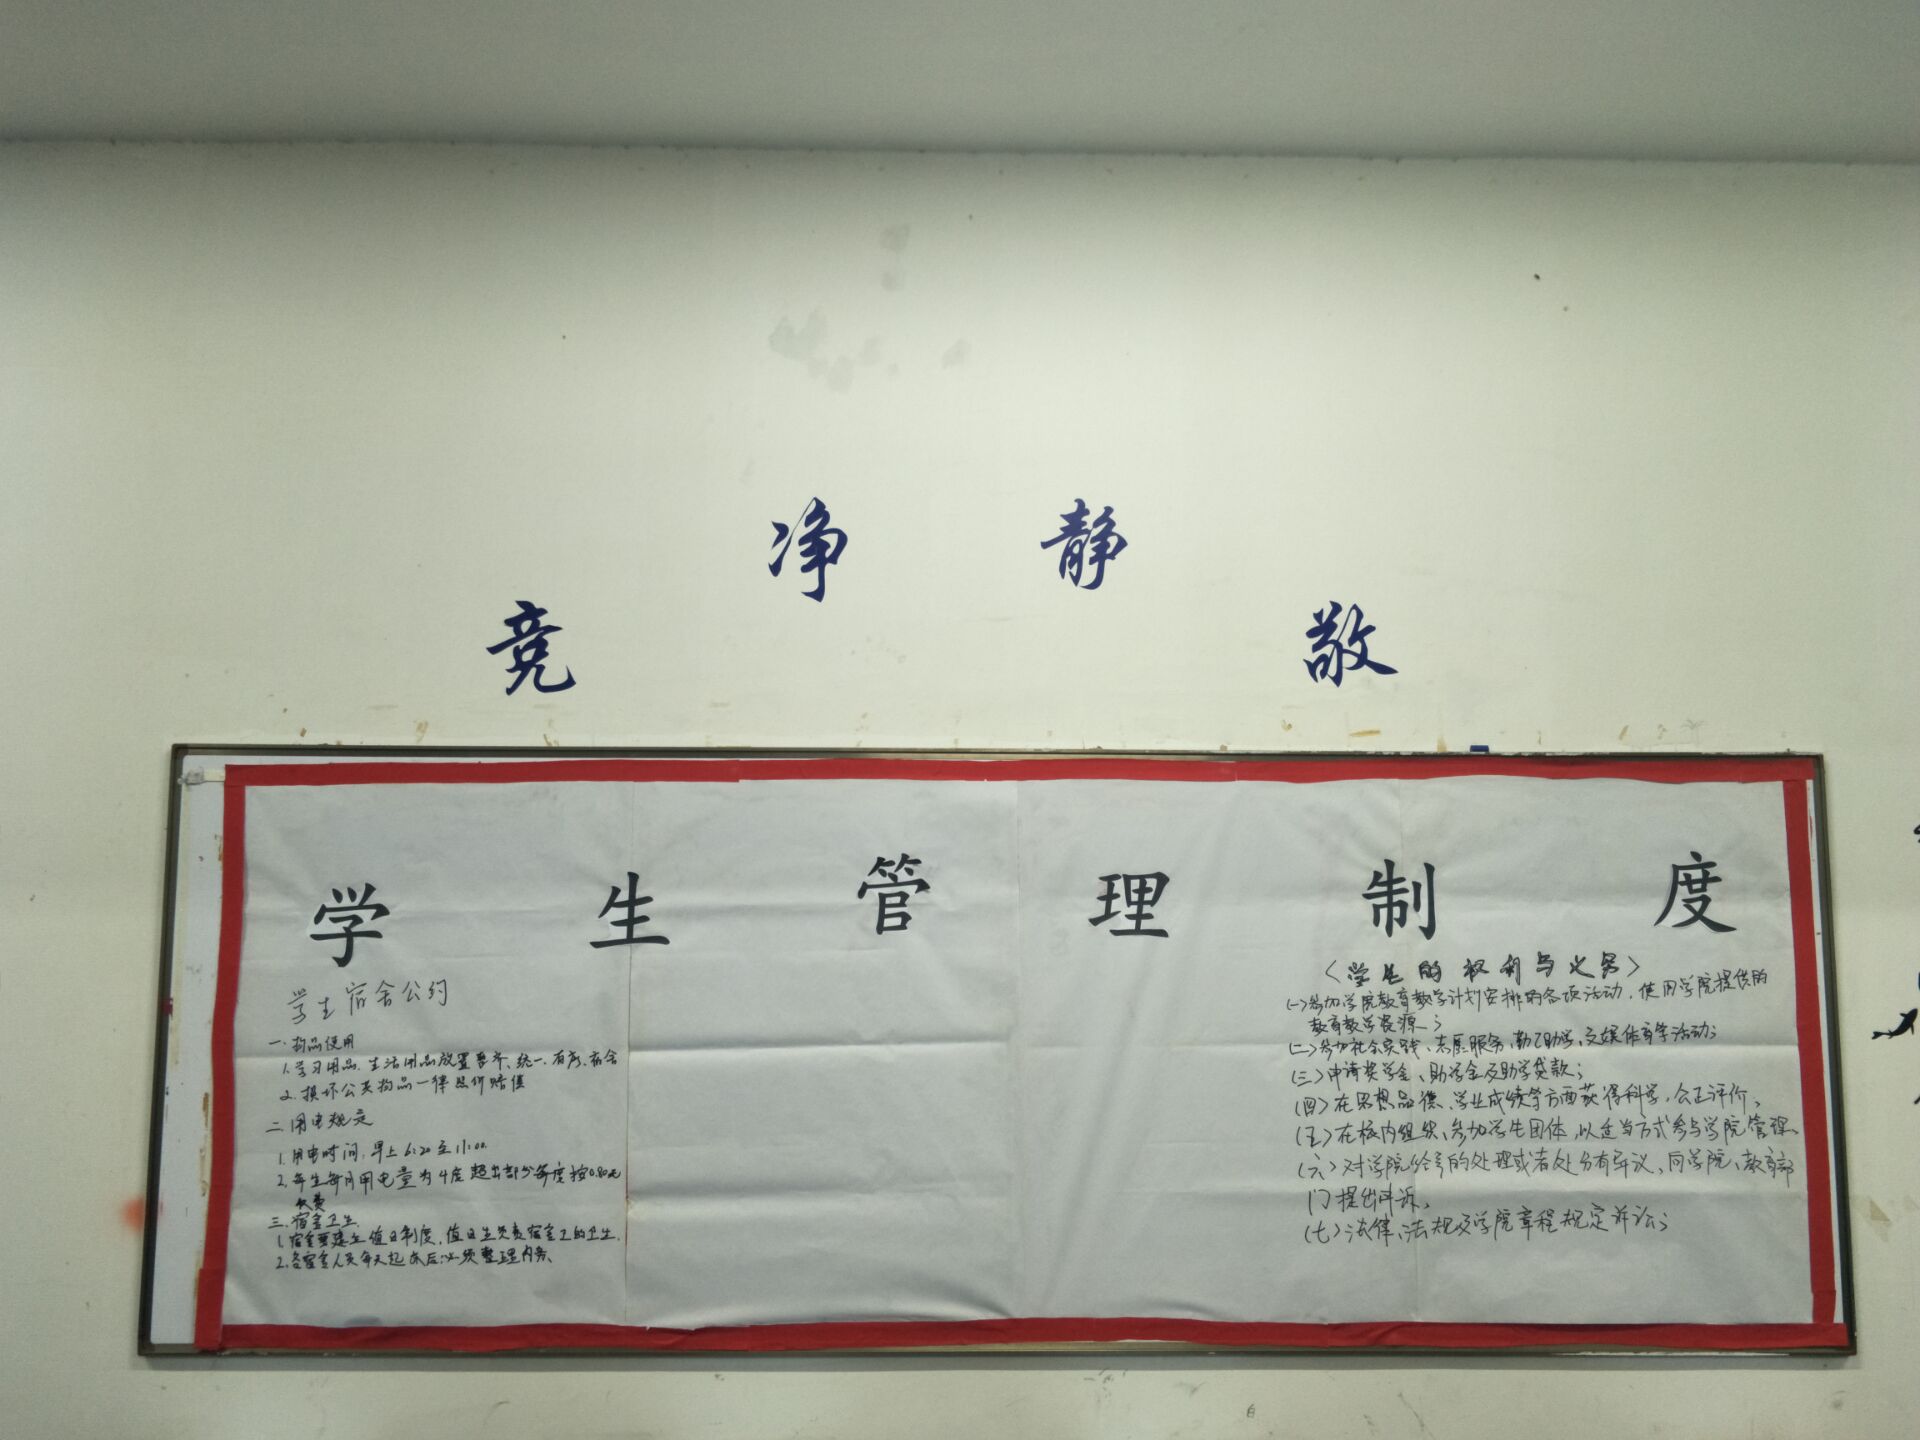 竞 净 静 敬
学生管理制度
学生宿舍公约
一.物品使用
1.学习用品、生活用品放置整齐、统一、有序、宿舍
2.损坏公共物品一律照价赔偿
二.用电规定
1.用电时间,早上6:20至11:00.
2.每生每月用电量为4度超出部分每度按0.80元
收费
三.宿舍卫生.
1.宿舍要建立值日制度,值日生负责宿舍卫的卫生.
2.各宿舍人员每天起床后必须整理内务、
〈学生的权利与义务〉
(一)参加学院教育教学计划安排的各项活动,使用学院提供的
教育教学资源;
(二)参加社会实践、志愿服务、勤工助学、文娱体育等活动;
(三)申请奖学金、助学金及助学贷款;
(四)在思想品德、学业成绩等方面获得科学、公正评价、
(五)在校内组织、参加学生团体,以适当方式参与学院管理、
(六)对学院给予的处理或者处分有异议,向学院、教育部
门提出申诉、
(七)法律、法规及学院章程规定诉讼;